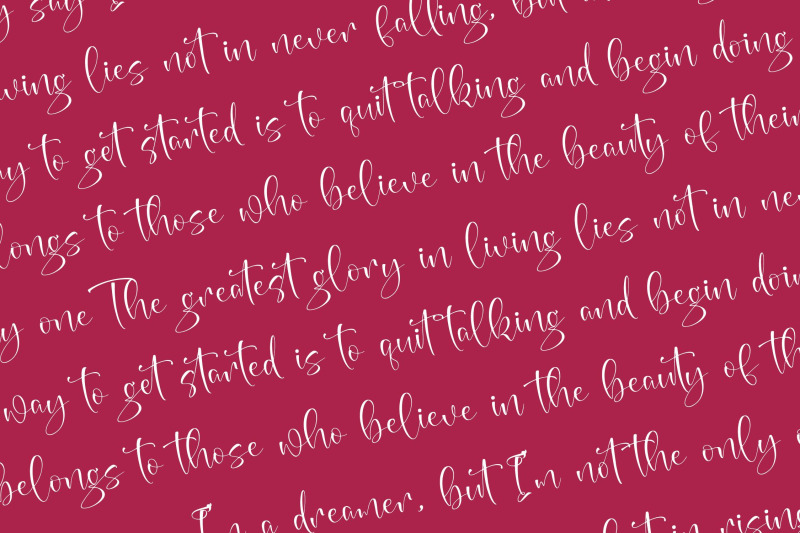 say I
living lies not in never falling, but
way to get started is to quit talking and begin doing
belongs to those who believe in the beauty of their
only one The greatest glory in living lies not in
way to get started is to quit talking and begin doing
belongs to those who believe in the beauty of
I'm a dreamer, but I'm not the only
in rising